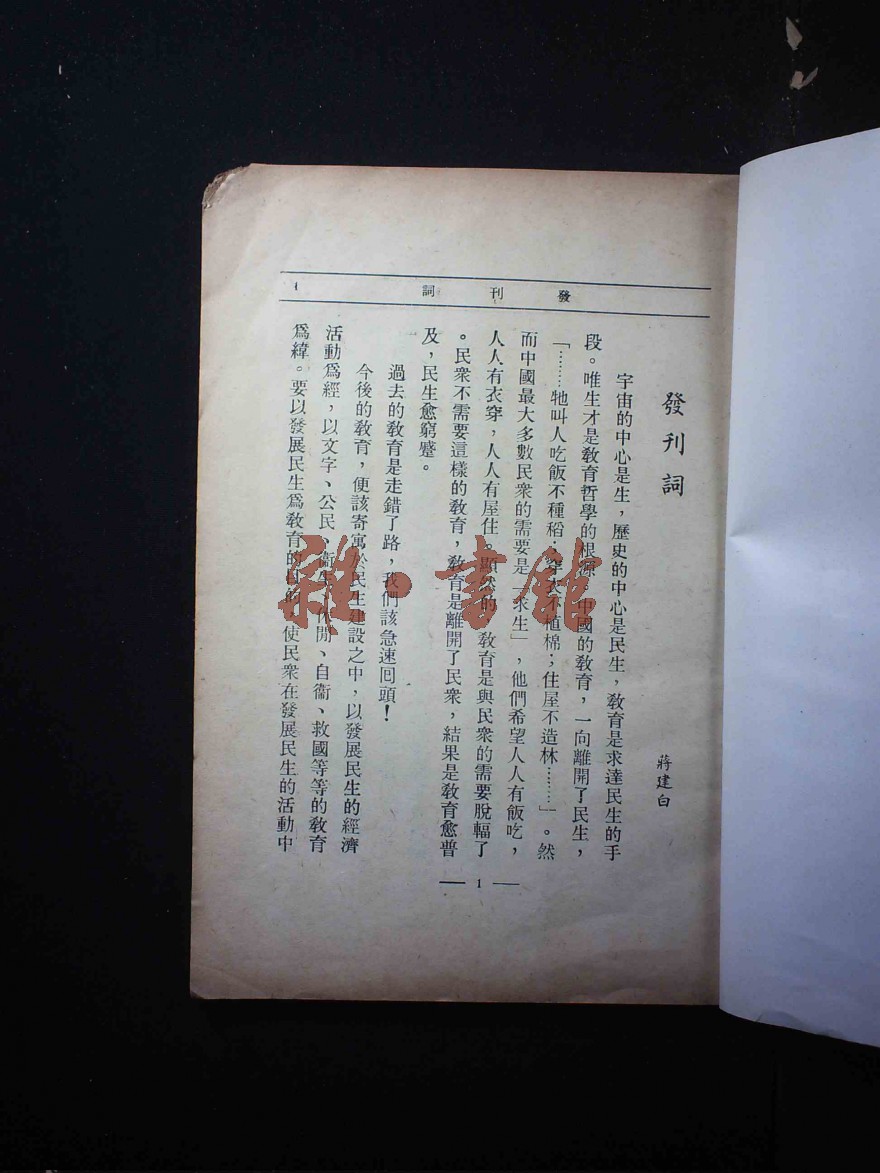 發刊詞
1
發刊詞
蔣建白
宇宙的中心是生，歷史的中心是民生，教育是求達民生的手
段。唯生才是教育哲學的根源，中國的教育，一向離開了民生，
「………牠叫人吃飯不種稻；穿衣不植棉；住屋不造林………」。然
而中國最大多數民衆的需要是「求生」，他們希望人人有飯吃，
人人有衣穿，人人有屋住，顯然的，教育是與民衆的需要脫輻了
。民衆不需要這樣的教育，教育是離開了民衆，結果是教育愈普
及，民生愈窮蹙。
過去的教育是走錯了路，我們該急速囘頭！
今後的教育，便該寄寓於民生建設之中，以發展民生的經濟
活動爲經，以文字、公民、衞生、休閒、自衞、救國等等的教育
爲緯。要以發展民生爲教育的目的，使民衆在發展民生的活動中
— 1 —
雜·書館